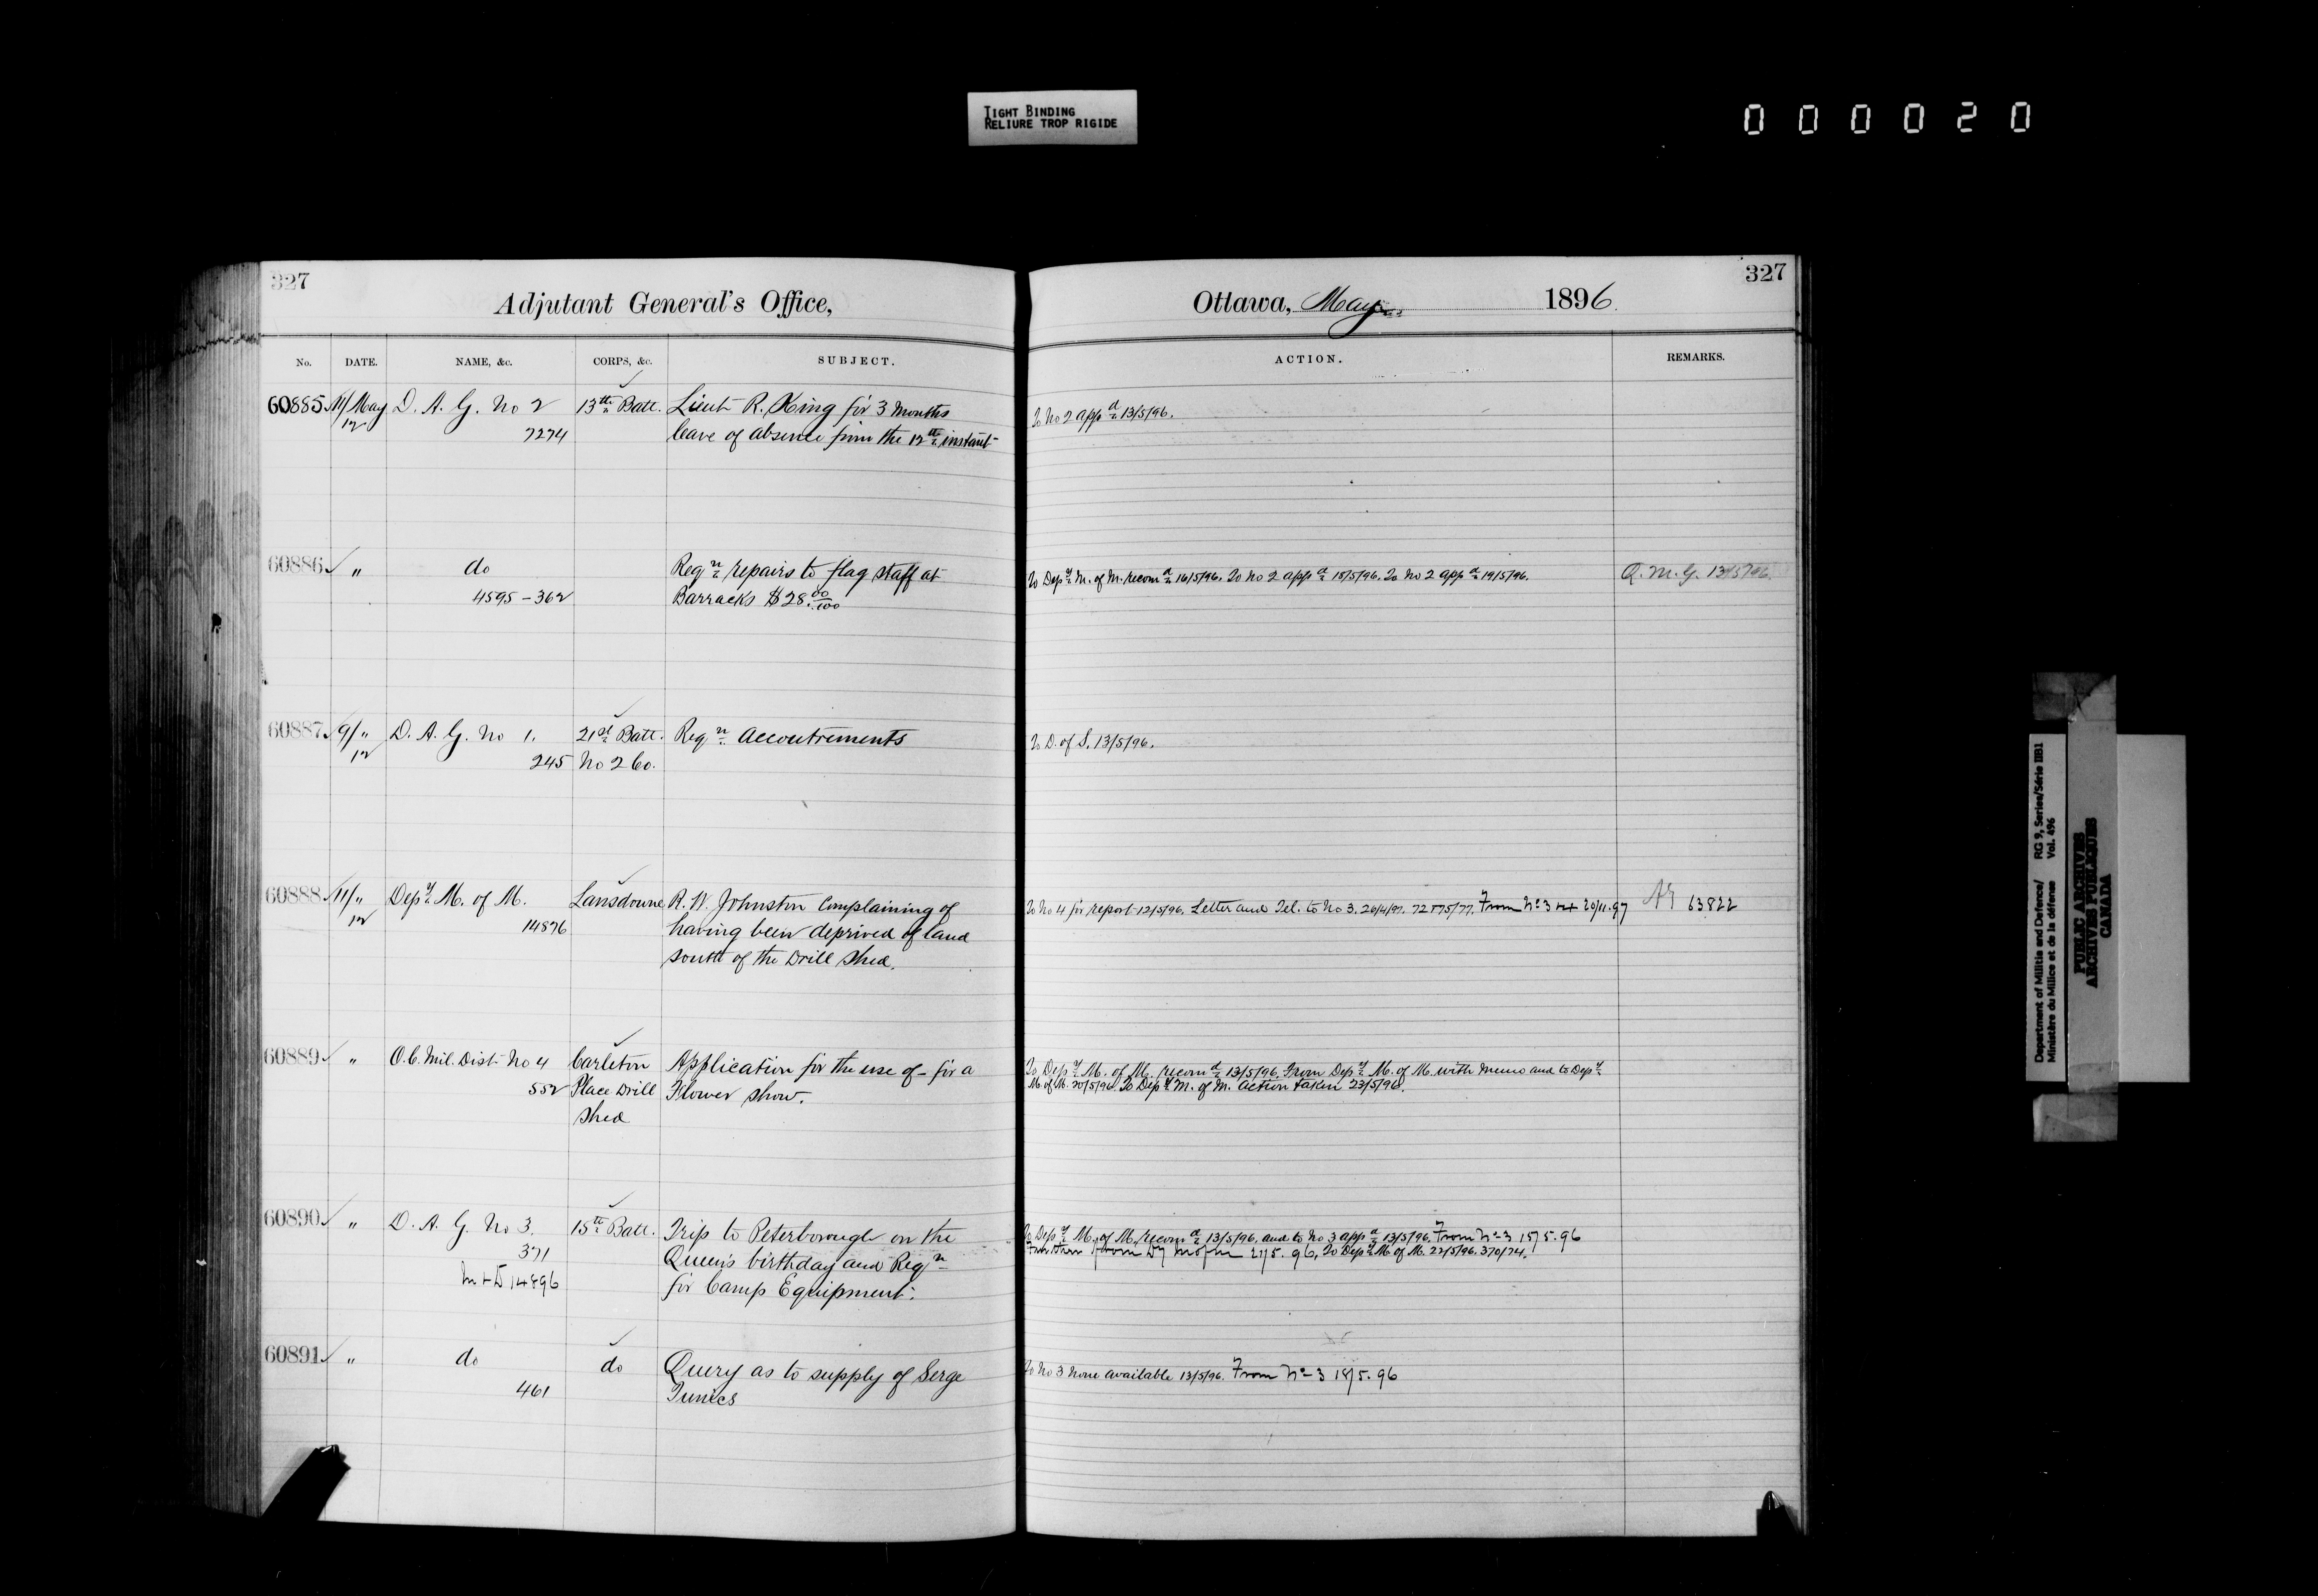 TIGHT BINDING
RELIURE TROP RIGIDE
000020
327
Adjutant General's Office,
Ottawa, May 1896.
327
No. DATE. NAME, &c. CORPS, &c. SUBJECT. ACTION. REMARKS.
60885 11/May D. A. G. No 2 13th Batt. Lieut R. King for 3 months To No 2 appd 13/5/96.
12 7274 leave of absence from the 12th instant
60886 " do Reqn repairs to flag staff at To Depy M. of M. recomd 16/5/96. To No 2 appd 18/5/96. To No 2 appd 19/5/96. Q. M. G. 13/5/96.
4595-362 Barracks $28.00/100
60887 9/" D. A. G. No 1. 21st Batt. Reqn accoutrements To D. of S. 13/5/96.
12 245 No 2 Co.
60888 11/" Depy M. of M. Lansdowne R. W. Johnston complaining of To No 4 for report 12/5/96. Letter and Tel. to No 3. From No 3 20/11.97 63822
12 14876 having been deprived of land
south of the Drill Shed.
60889 " O.C. Mil. Dist No 4 Carleton Application for the use of - for a To Depy M. of M. recomd 13/5/96. From Depy M. of M. with memo and to Depy
552 Place Drill Flower show. M. of M. 20/5/96. To Depy M. of M. action taken 23/5/96.
Shed
60890 " D. A. G. No 3. 15th Batt. Trip to Peterborough on the To Depy M. of M. recomd 13/5/96. and to No 3 appd 13/5/96. From No 3 15/5.96
371 Queen's birthday and Reqn from Dy M of M 21/5.96, To Depy M. of M. 22/5/96.
14896 for Camp Equipment.
60891 " do do Query as to supply of Serge To No 3 none available 13/5/96. From No 3 18/5.96
461 Tunics
Department of Militia and Defence/ RG 9, Series/Série IIB1
Ministère du Milice et de la défense Vol. 496
PUBLIC ARCHIVES
ARCHIVES PUBLIQUES
CANADA